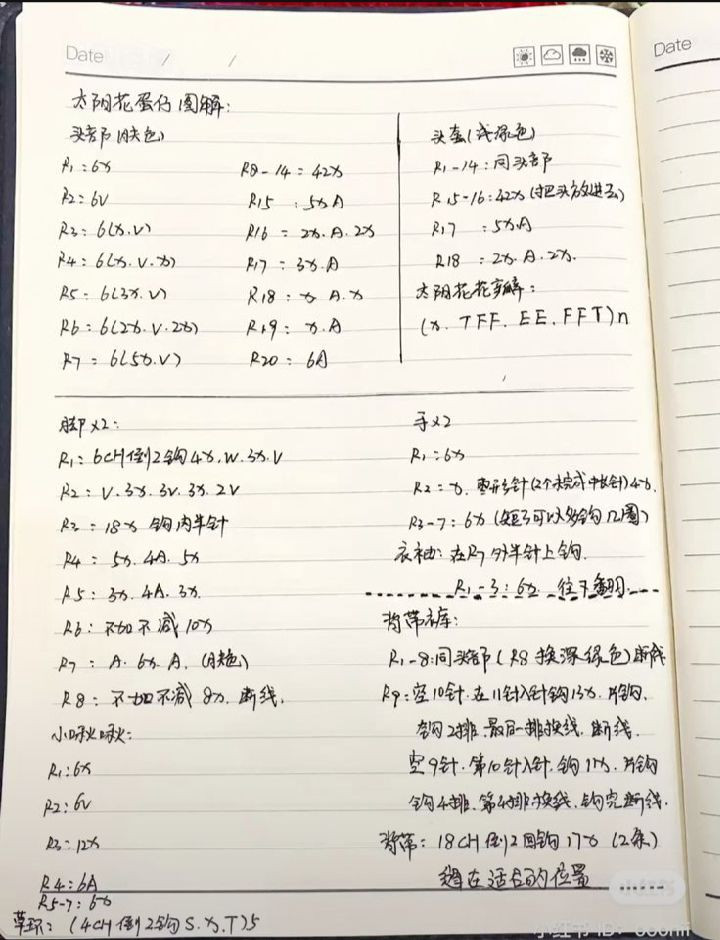 Date / /
Date
太阳花蛋仔图解:
头部(肤色)
R1:6x
R2:6V
R3:6(x.V)
R4:6(x.V.x)
R5:6(3x.V)
R6:6(2x.V.2x)
R7=6(5x.V)
R8-14=42x
R15:5x A
R16=2x.A.2x
R17=3x.A
R18:x A.x
R19=x.A
R20:6A
头套(浅绿色)
R1-14:同头部
R15-16:42x(把头放进去)
R17:5x.A
R18:2x.A.2x.
太阳花花瓣解:
(x.TFF.EE.FFT)n
脚x2:
R1:6CH倒2钩4x.W.3x.V
R2=V.3x.3V.3x.2V
R3=18x钩内半针
R4:5x.4A.5x
R5:3x.4A.3x.
R6:不加不减10x
R7:A.6x.A.(肤色)
R8:不加不减8x.断线.
小啾啾:
R1:6x
R2:6V
R3:12x
R4:6A
R5-7:6x
草环:(4CH倒2钩S.x.T)5
手x2
R1:6x
R2=x.枣形针(2个未完成中长针)4x.
R3-7:6x(短了可以多钩几圈)
衣袖:在R7外半针上钩.
R1-3:6x 往下翻.
背带裤:
R1-8:同头部(R8换深绿色)断线
R9:空10针.在11针入针钩13x.片钩.
钩2排.最后一排换线.断线.
空9针.第10针入针.钩17x.片钩
钩4排.第4排换线.钩完断线.
背带:18CH倒2回钩17x(2条)
缝在适合的位置
小红书
小红书ID: